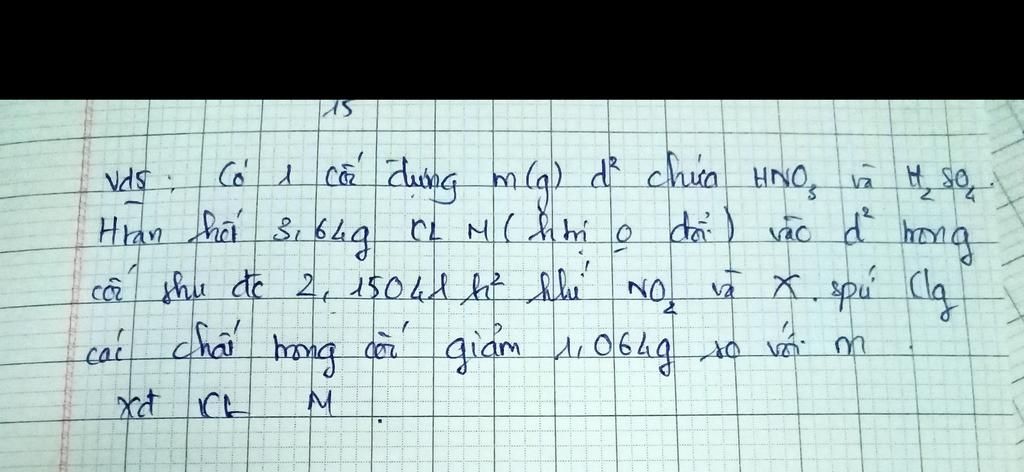 15
Vd5: Có 1 cốc đựng m(g) d² chứa HNO3 và H2SO4.
Htan hết 3,64g KL M (htrị o đổi) vào d² trong
cốc thu đc 2,1504l h² khí NO2 và X. spứ Klg
các chất trong cốc giảm 1,064g so với m.
xđ KL M.